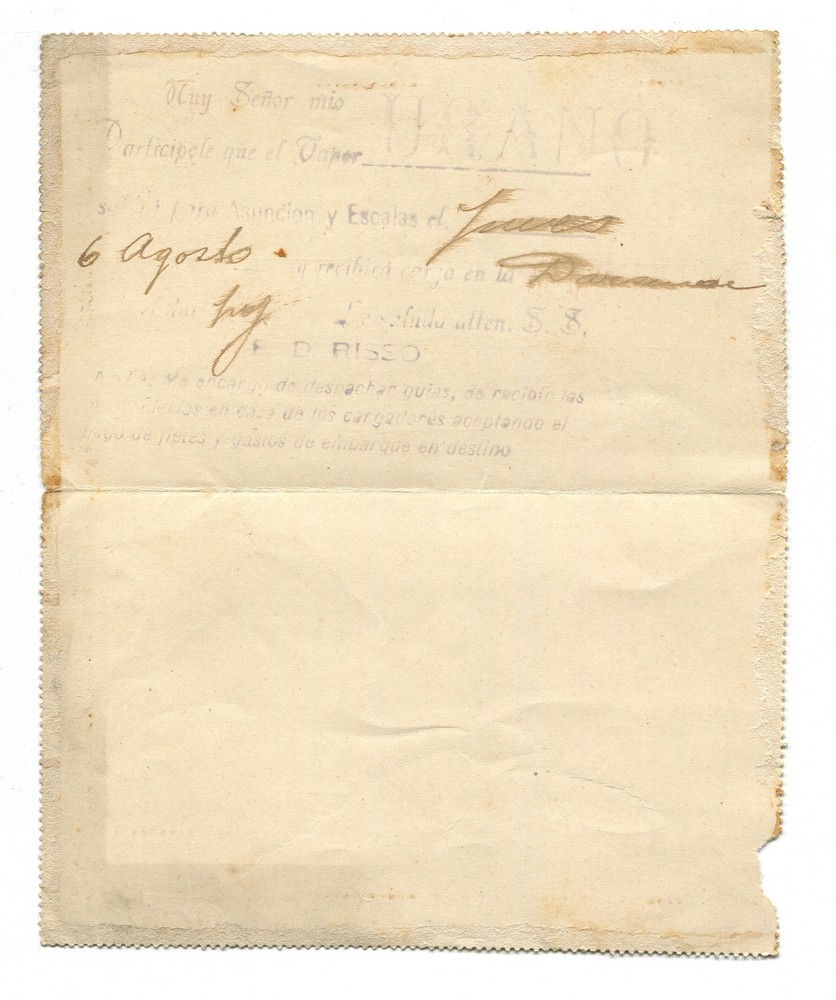 Muy Señor mio
Participole que el Vapor URANO
saldrá para Asuncion y Escalas el Jueves
6 Agosto y recibirá carga en la Darsena
hoy Le saluda atten. S. S.
E. D. RISSO
NOTA: Me encargo de despachar guias, de recibir las
en casa de los cargadores aceptando el
pago de fletes y gastos de embarque en destino